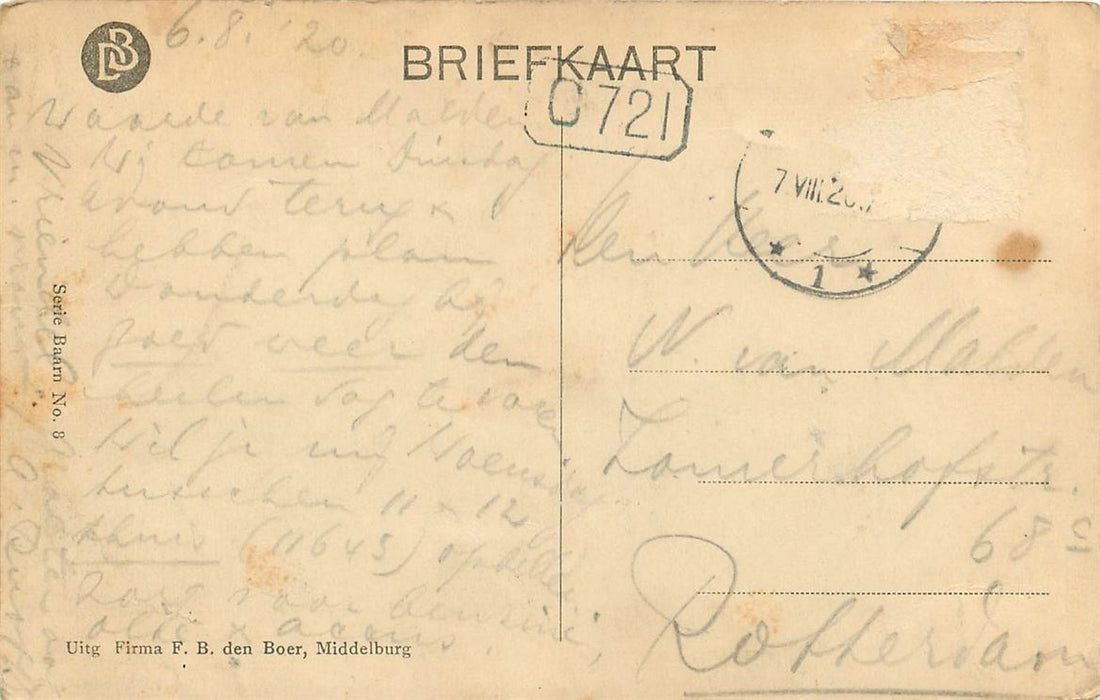 DB
6.8.'20.
BRIEFKAART
C 721
7.VIII.20.
1
Waarde van Malden
Wij komen Dinsdag
avond terug &
hebben plan
Donderdag bij
goed weer den
heelen dag te
Wil je mij Woensdag
tusschen 11 & 12
thuis (11645)
zorg voor benzine,
olie &
Den Heer
W. van Malden
Zomerhofstr.
68 c
Rotterdam
Serie Baarn No. 8
Uitg Firma F. B. den Boer, Middelburg